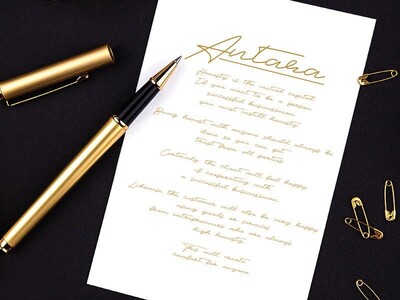 Antara
Honesty is the virtual capital
If you want to be a person
successful businessman
you must instill honesty
Being honest with anyone should always be
done so you can get
trust from all parties
Certainly the client will feel happy
if cooperating with
a successful businessman
Likewise the customer will also be very happy
using goods or services
from entrepreneurs who are always
high honesty
This will create
comfort for anyone